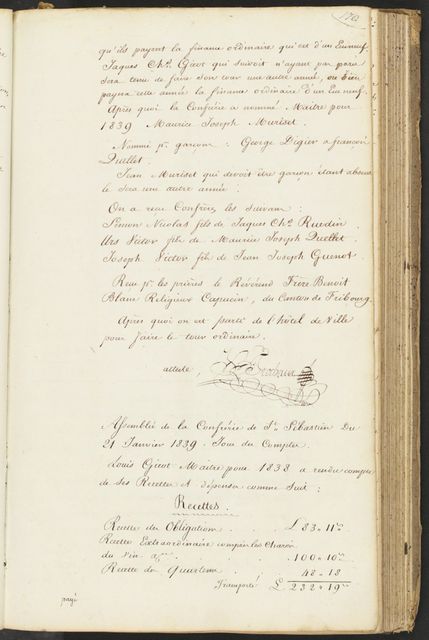 qu'ils payent la finance ordinaire qui est d'un Ecu neuf.
Jaques Chs Girot qui suivoit n'ayant pas paru
sera tenu de faire son tour une autre année, ou bien
payera cette année la finance ordinaire d'un Ecu neuf.
Après quoi la Confrérie a nommé Maitre pour
1839 Maurice Joseph Muriset.
Nommé pr garçon : George Digier a françois
Quellet.
Jean Muriset qui devoit être garçon étant absent
le sera une autre année.
On a reçu Confrère les suivans :
Simon Nicolas fils de Jaques Chs Ruedin.
Urs Victor fils de Maurice Joseph Quellet.
Joseph Victor fils de Jean Joseph Guenot
Reçu pr les prières le Révérend Frère Benoit
Blanc Religieux Capucin, du Canton de Fribourg.
Après quoi on est parti de l'hôtel de Ville
pour faire le tour ordinaire.
atteste,
Assemblée de la Confrérie de St Sébastien Du
21 Janvier 1839. Jour des Comptes
Louis Girot Maitre pour 1838 a rendu compte
de ses Recettes et dépenses comme suit :
Recettes.
Recette des Obligations . . £ 83 - 11
Recette Extraordinaire compris les
du vin . . 100 - 10
Recette de . . 48 - 18
Transporté £ 232 - 19
payé